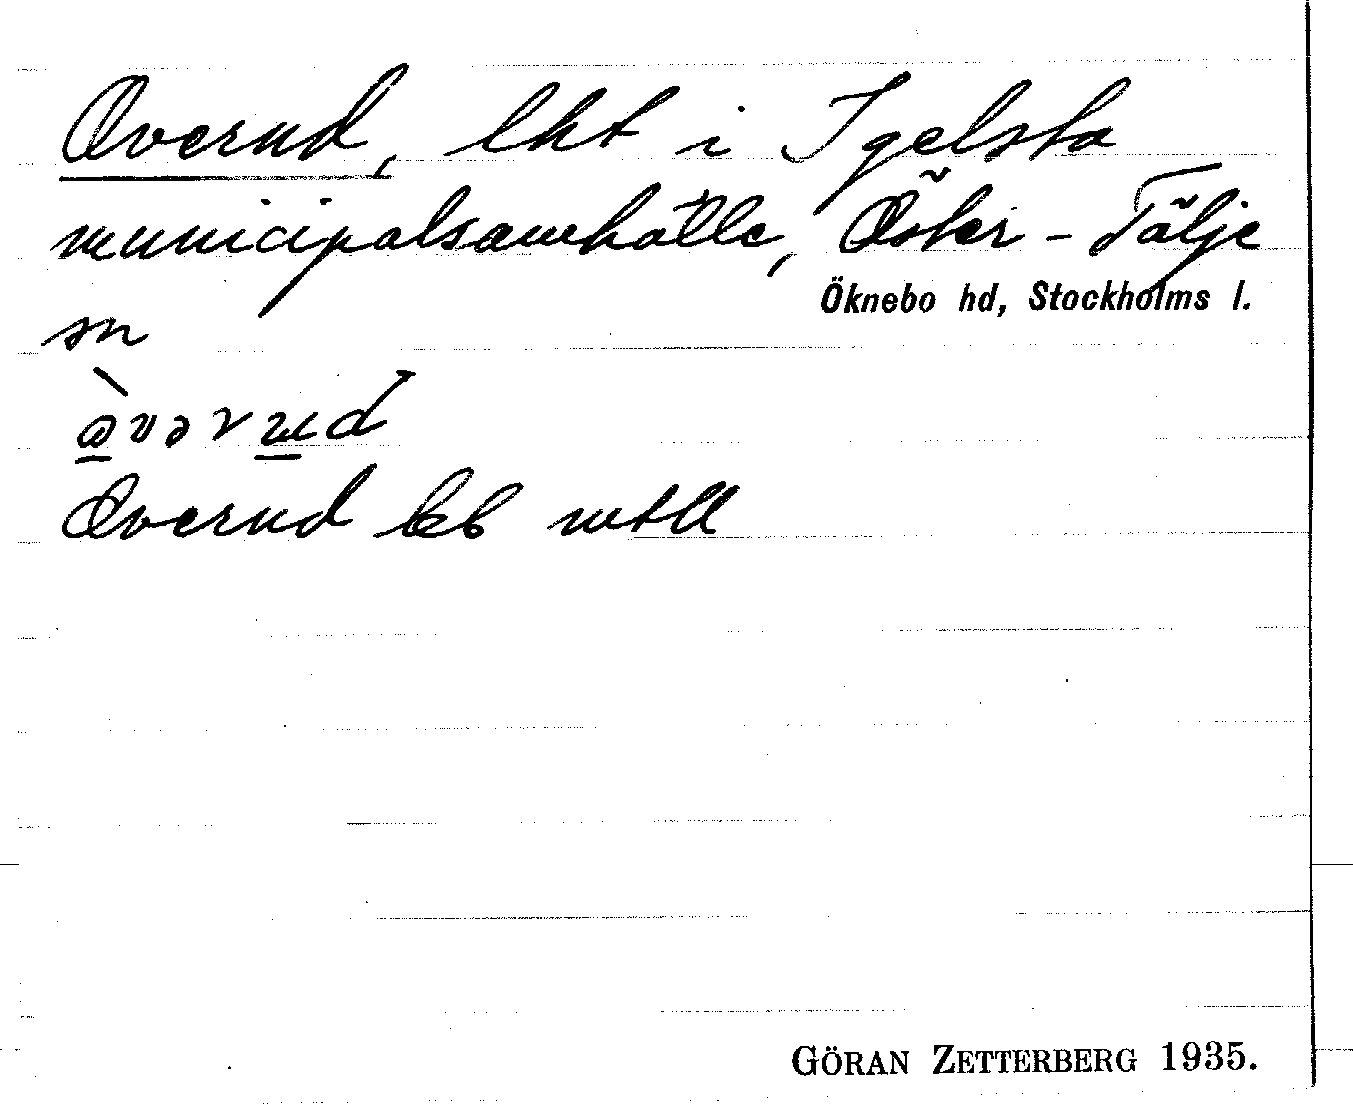 Overud, lht i Igelsta
municipalsamhälle, Öster-Tälje
Öknebo hd, Stockholms l.
sn
Overud
GÖRAN ZETTERBERG 1935.